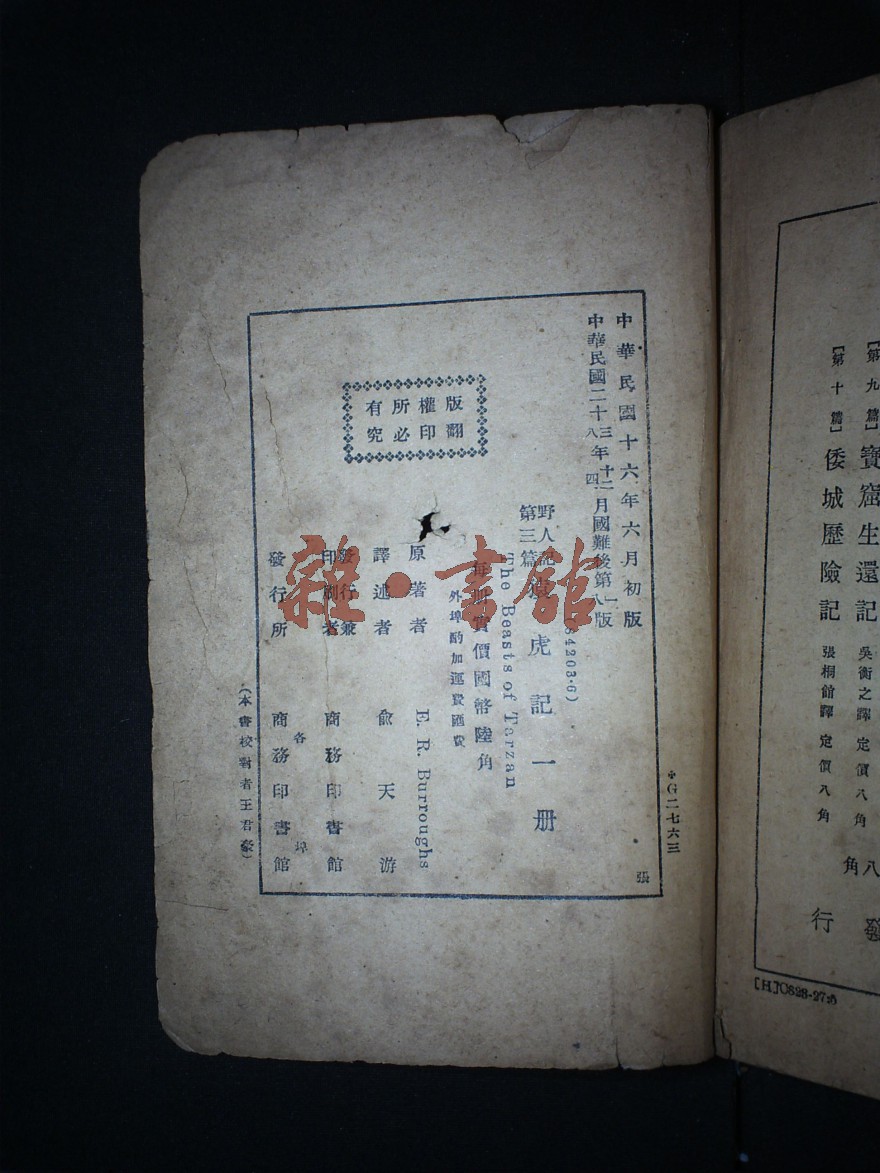 [第九篇] 寶窟生還記 吳衡之譯 定價八角
[第十篇] 倭城歷險記 張桐館譯 定價八角
八角
發
行
[H]C628-27:5
※G二七六三
張
中華民國十六年六月初版
中華民國二十三年十二月國難後第一版
八 四 八
4203·6)
野人記
第三篇
虎記一册
The Beasts of Tarzan
每册實價國幣陸角
外埠酌加運費匯費
版權所有
翻印必究
原著者 E. R. Burroughs
譯述者 俞天游
發行兼
印刷者 商務印書館
發行所 各埠 商務印書館
(本書校對者王君豪)
雜·書館